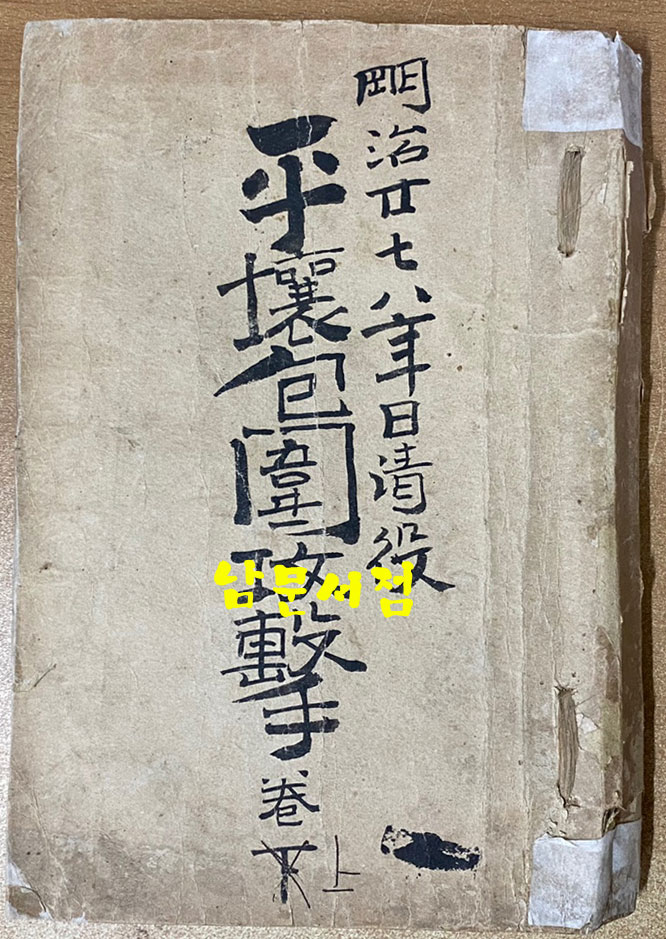 明治廿七八年日清役
平壤包圍攻擊 卷下上
남문서점